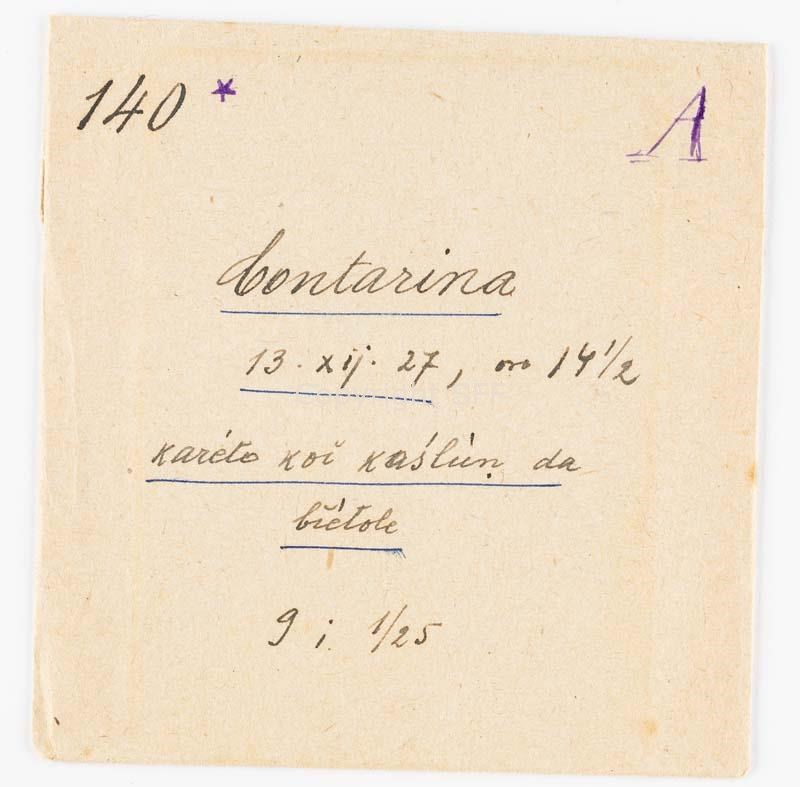 140 * A
Contarina
13. xij. 27, ore 14 1/2
karéto koi kaślún da
biétole
9 i. 1/25